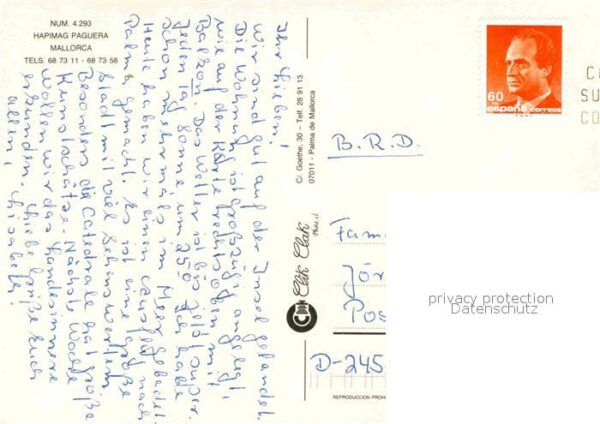 NUM. 4.293
HAPIMAG PAGUERA
MALLORCA
TELS. 68 73 11 - 68 73 58
Ihr Lieben!
Wir sind gut auf der Insel gelandet.
Die Wohnung ist großzügig angelegt,
wie auf der Karte
Balkon. Das Wetter ist bis jetzt super.
Jeden Tag Sonne um 25°. Ich habe
schon mehrmals im Meer gebadet.
Heute haben wir einen Ausflug nach
Palma gemacht. Es ist eine große
Stadt mit viel Sehenswertem.
Besonders die Catedrale hat große
Kunstschätze. Nächste Woche
wollen wir das Landesinnere
erkunden. Liebe Grüße Euch
allen,
C/. Goethe, 30 - Telf. 28 91 13
07011 - Palma de Mallorca
Clik Clak
60
españa correos
B.R.D.
Fam
Jör
Pos
D-245
REPRODUCCION PROHI
privacy protection
Datenschutz